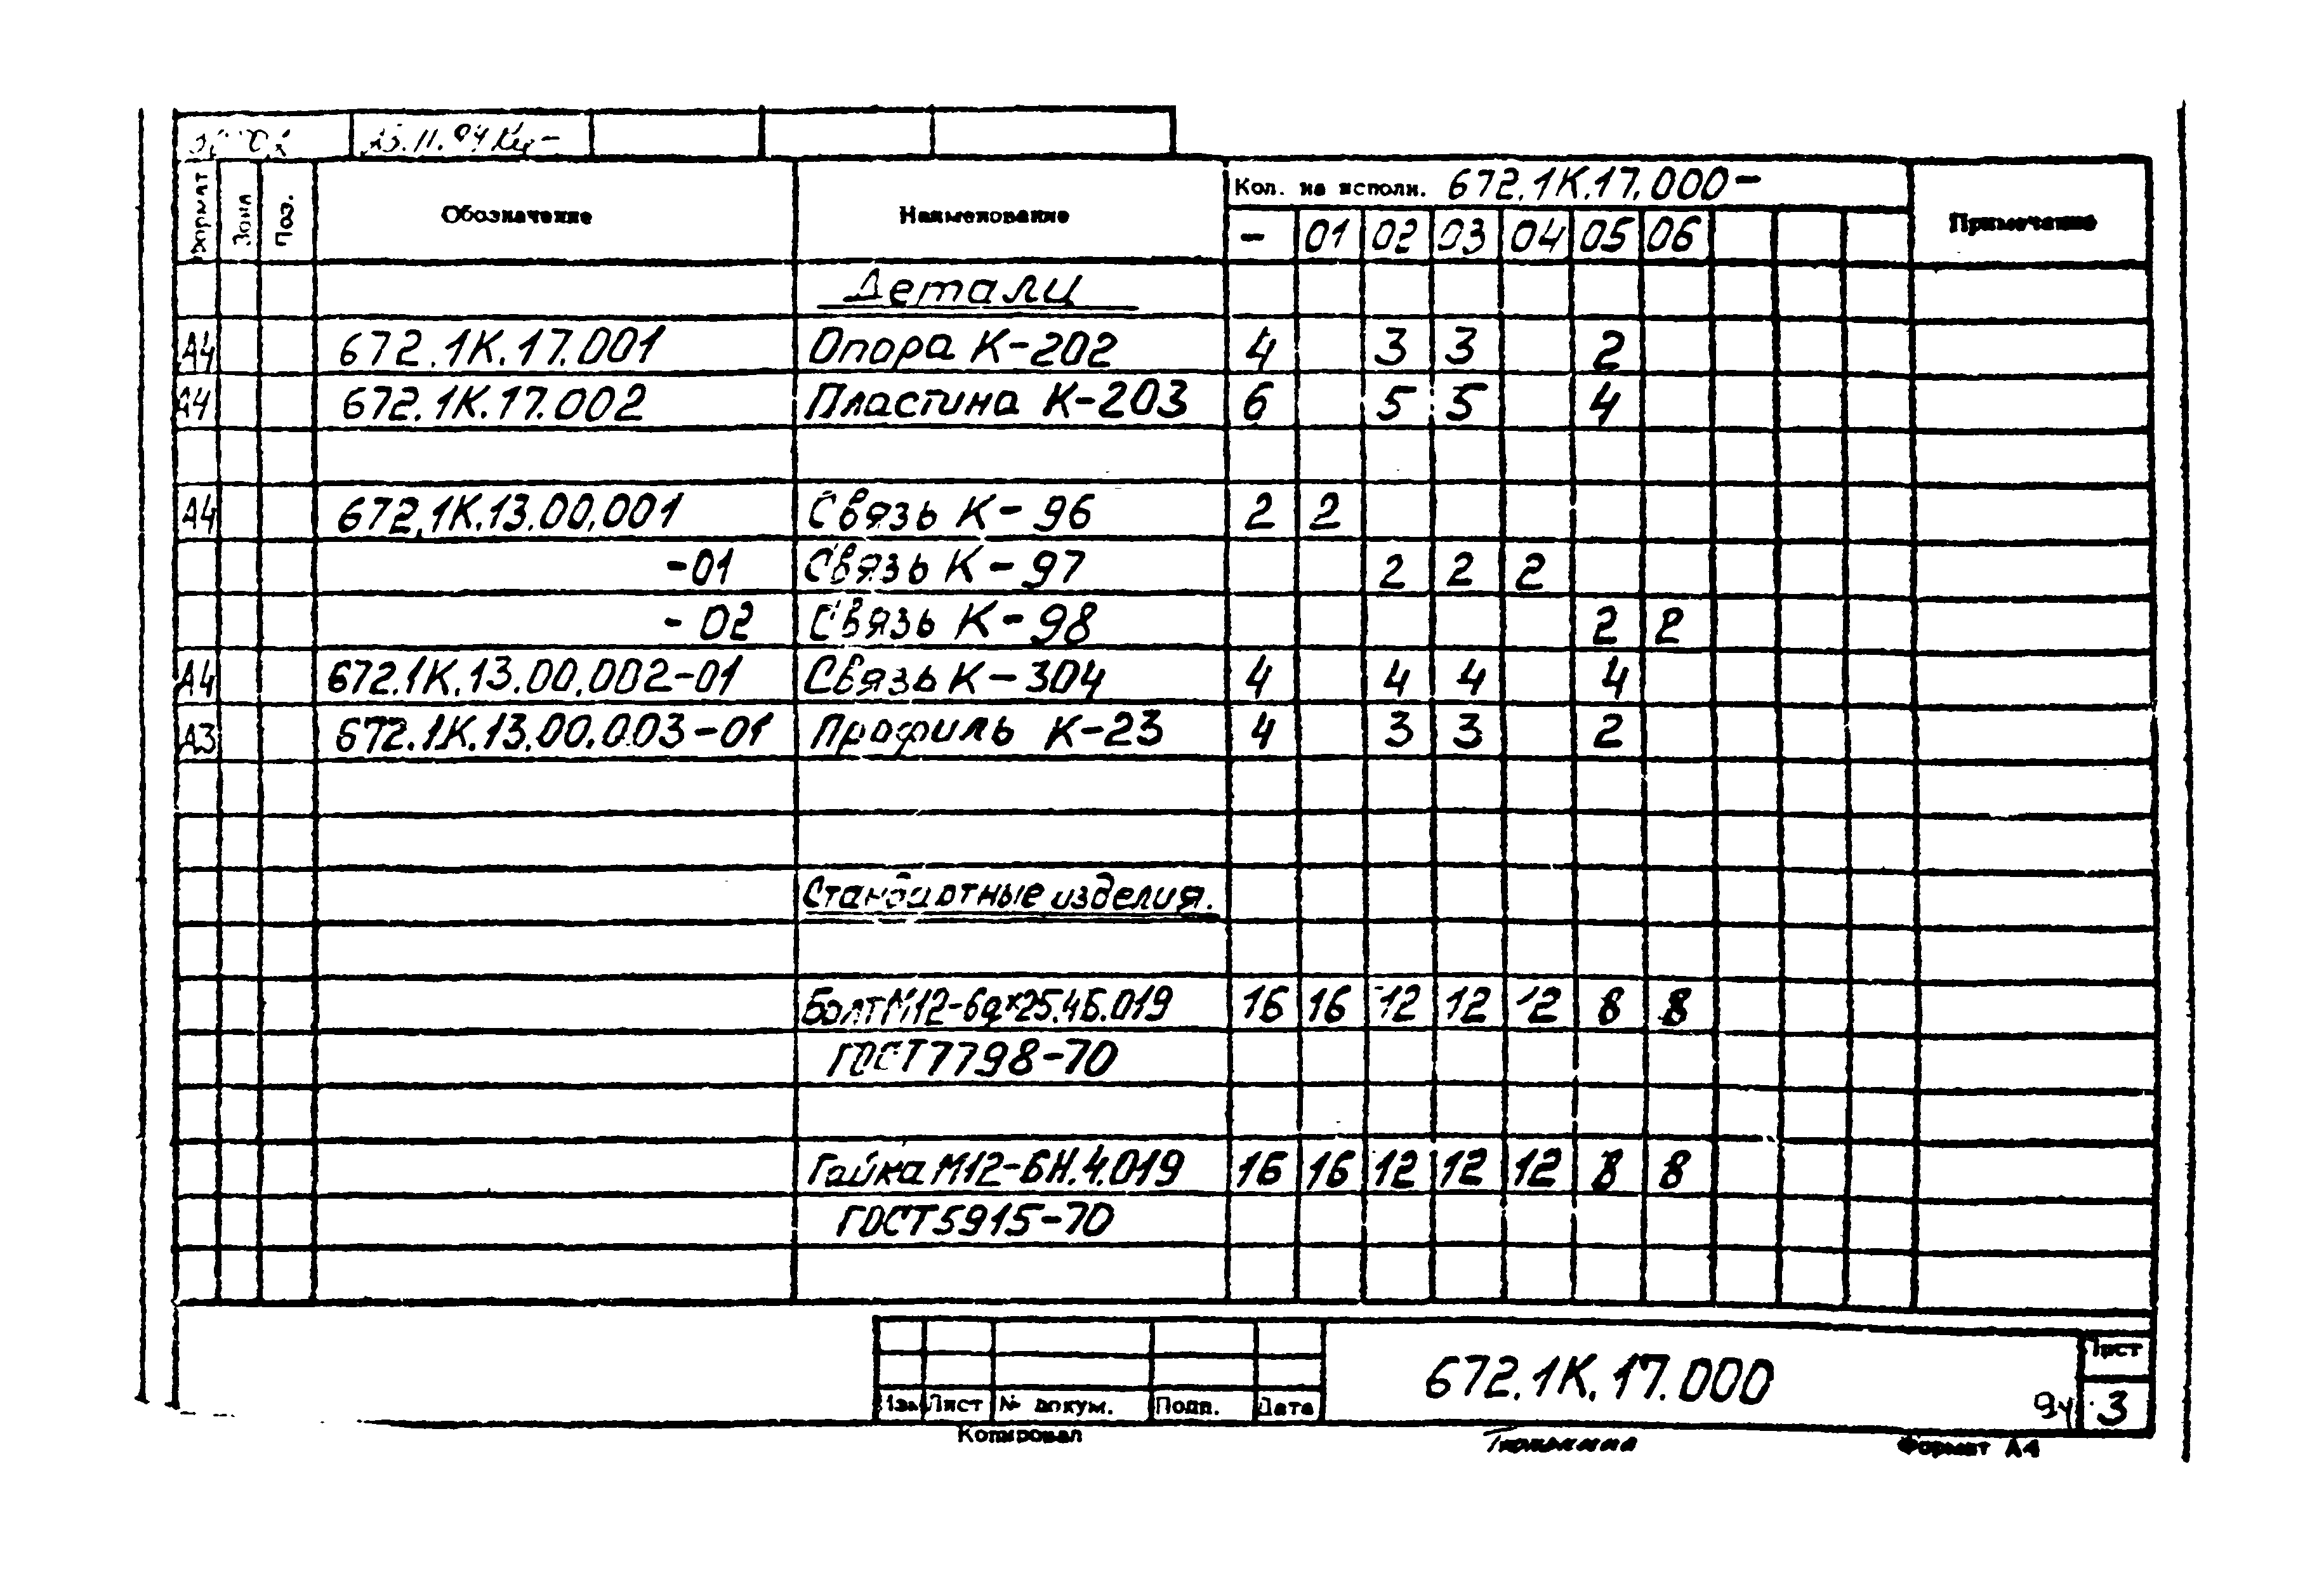 Формат Зона Поз. Обозначение Наименование Кол. на исполн. 672.1К.17.000- Примечание
- 01 02 03 04 05 06
Детали
А4 672.1К.17.001 Опора К-202 4 3 3 2
А4 672.1К.17.002 Пластина К-203 6 5 5 4
А4 672.1К.13.00.001 Связь К-96 2 2
-01 Связь К-97 2 2 2
-02 Связь К-98 2 2
А4 672.1К.13.00.002-01 Связь К-304 4 4 4 4
А3 672.1К.13.00.003-01 Профиль К-23 4 3 3 2
Стандартные изделия.
Болт М12-6gx25.46.019 16 16 12 12 12 8 8
ГОСТ 7798-70
Гайка М12-6Н.4.019 16 16 12 12 12 8 8
ГОСТ 5915-70
Изм Лист № докум. Подп. Дата 672.1К.17.000 Лист
3
Копировал Формат А4